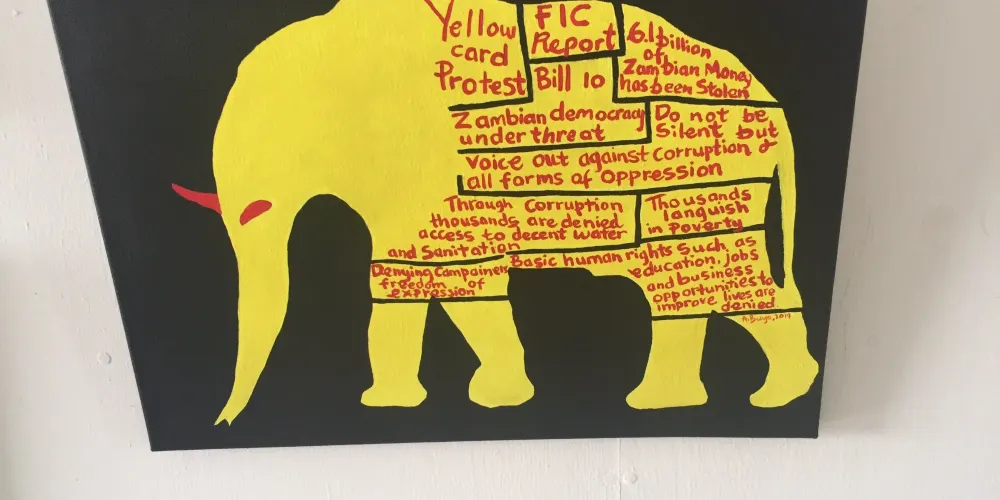 Yellow
card
Protest
FIC
Report
Bill 10
6.1billion
of
Zambian Money
has been Stolen
Zambian democracy
under threat
Do not be
Silent but
voice out against corruption &
all forms of oppression
Through Corruption
thousands are denied
access to decent water
and Sanitation
Thousands
languish
in Poverty
Denying Campainers
freedom of
expression
Basic human rights such as
education, jobs
and business
opportunities to
improve lives are
denied
A.Buyo, 2019